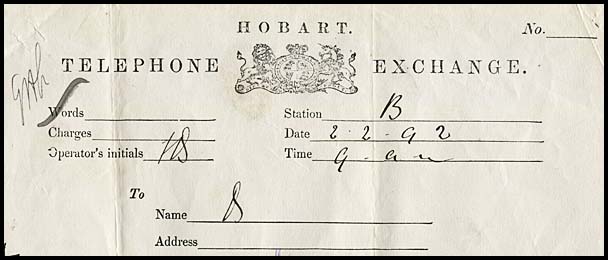 HOBART.
No.
TELEPHONE EXCHANGE.
Words
Station B
Charges
Date 2 2 . 92
Operator's initials HB
Time 9 am
To
Name B
Address